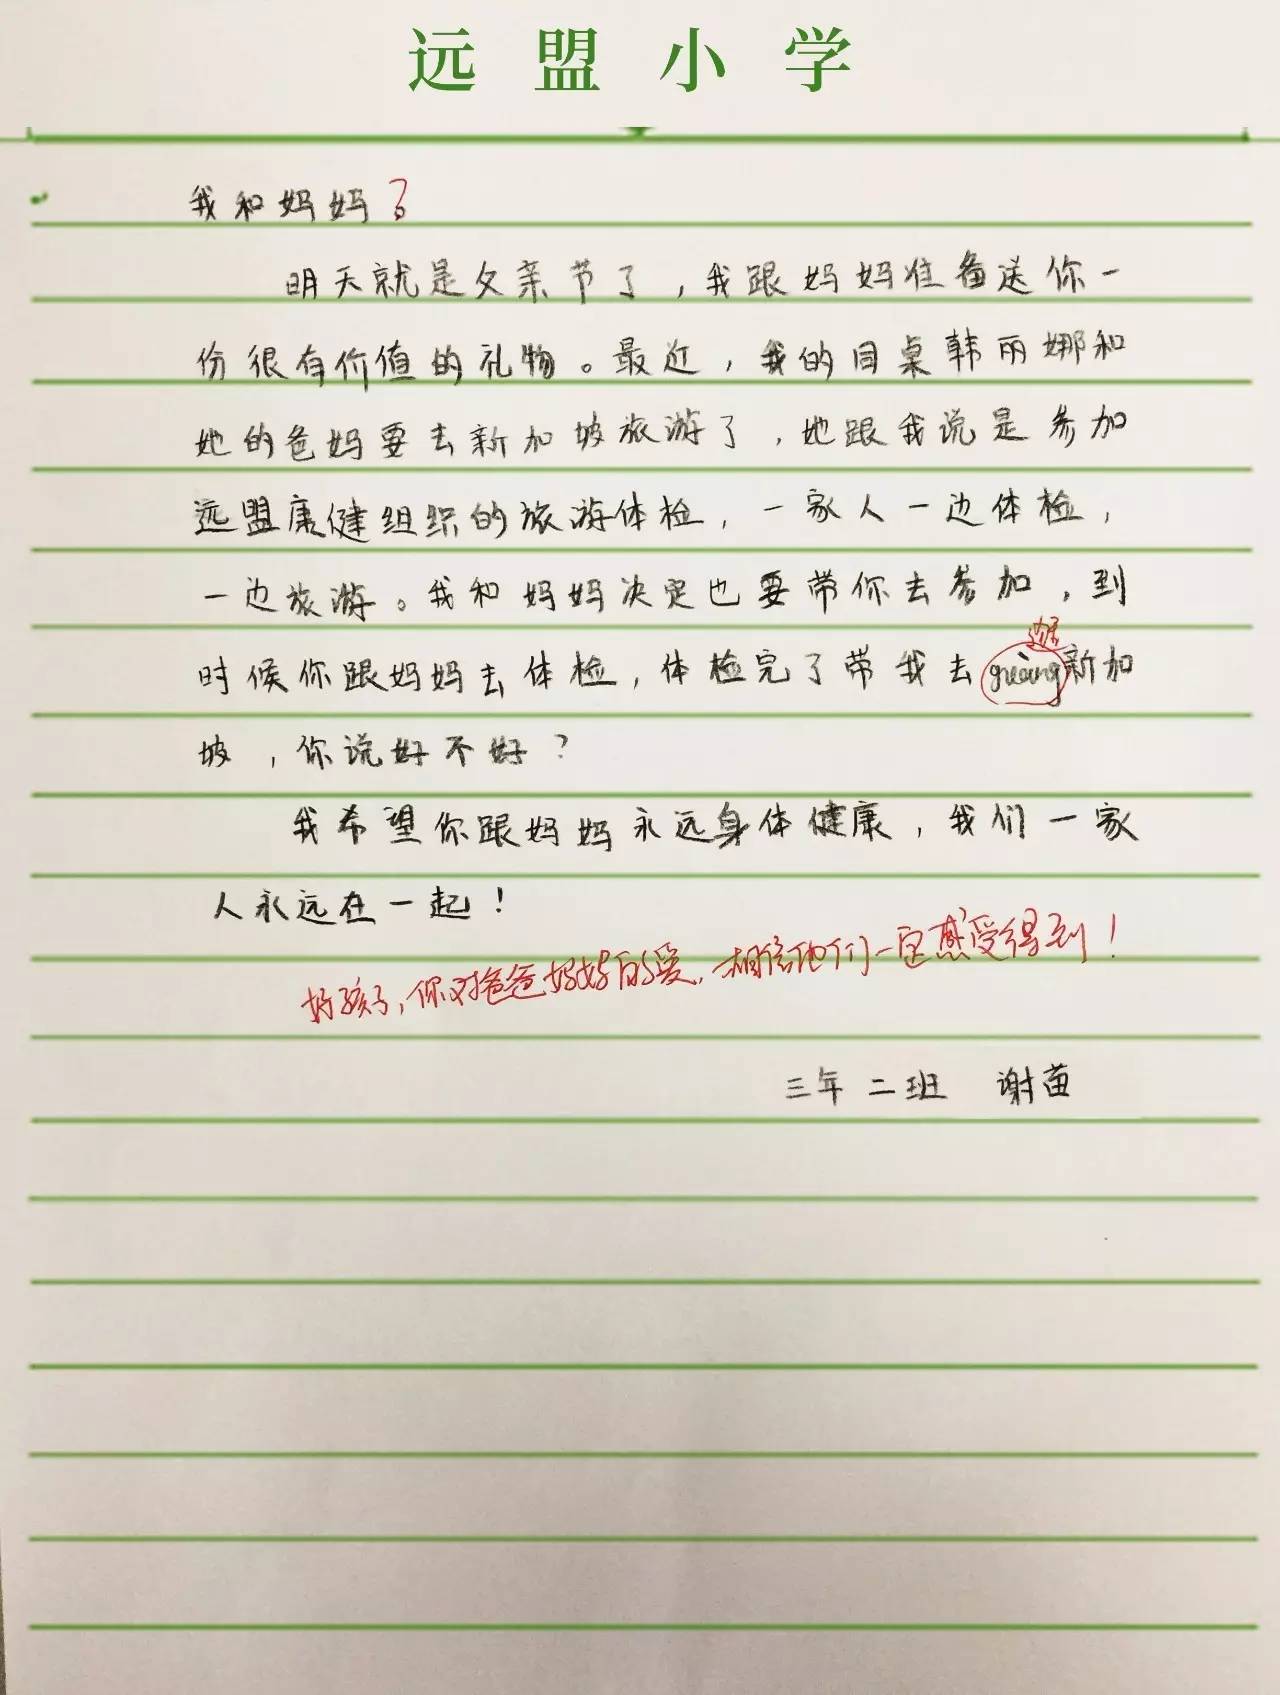 远盟小学
我和妈妈?
明天就是父亲节了，我跟妈妈准备送你一
份很有价值的礼物。最近，我的同桌韩丽娜和
她的爸妈要去新加坡旅游了，她跟我说是参加
远盟康健组织的旅游体检，一家人一边体检，
一边旅游。我和妈妈决定也要带你去参加，到
逛
时候你跟妈妈去体检，体检完了带我去guàng新加
坡，你说好不好？
我希望你跟妈妈永远身体健康，我们一家
人永远在一起！
好孩子，你对爸爸妈妈的爱，相信他们一定感受得到！
三年二班 谢苗